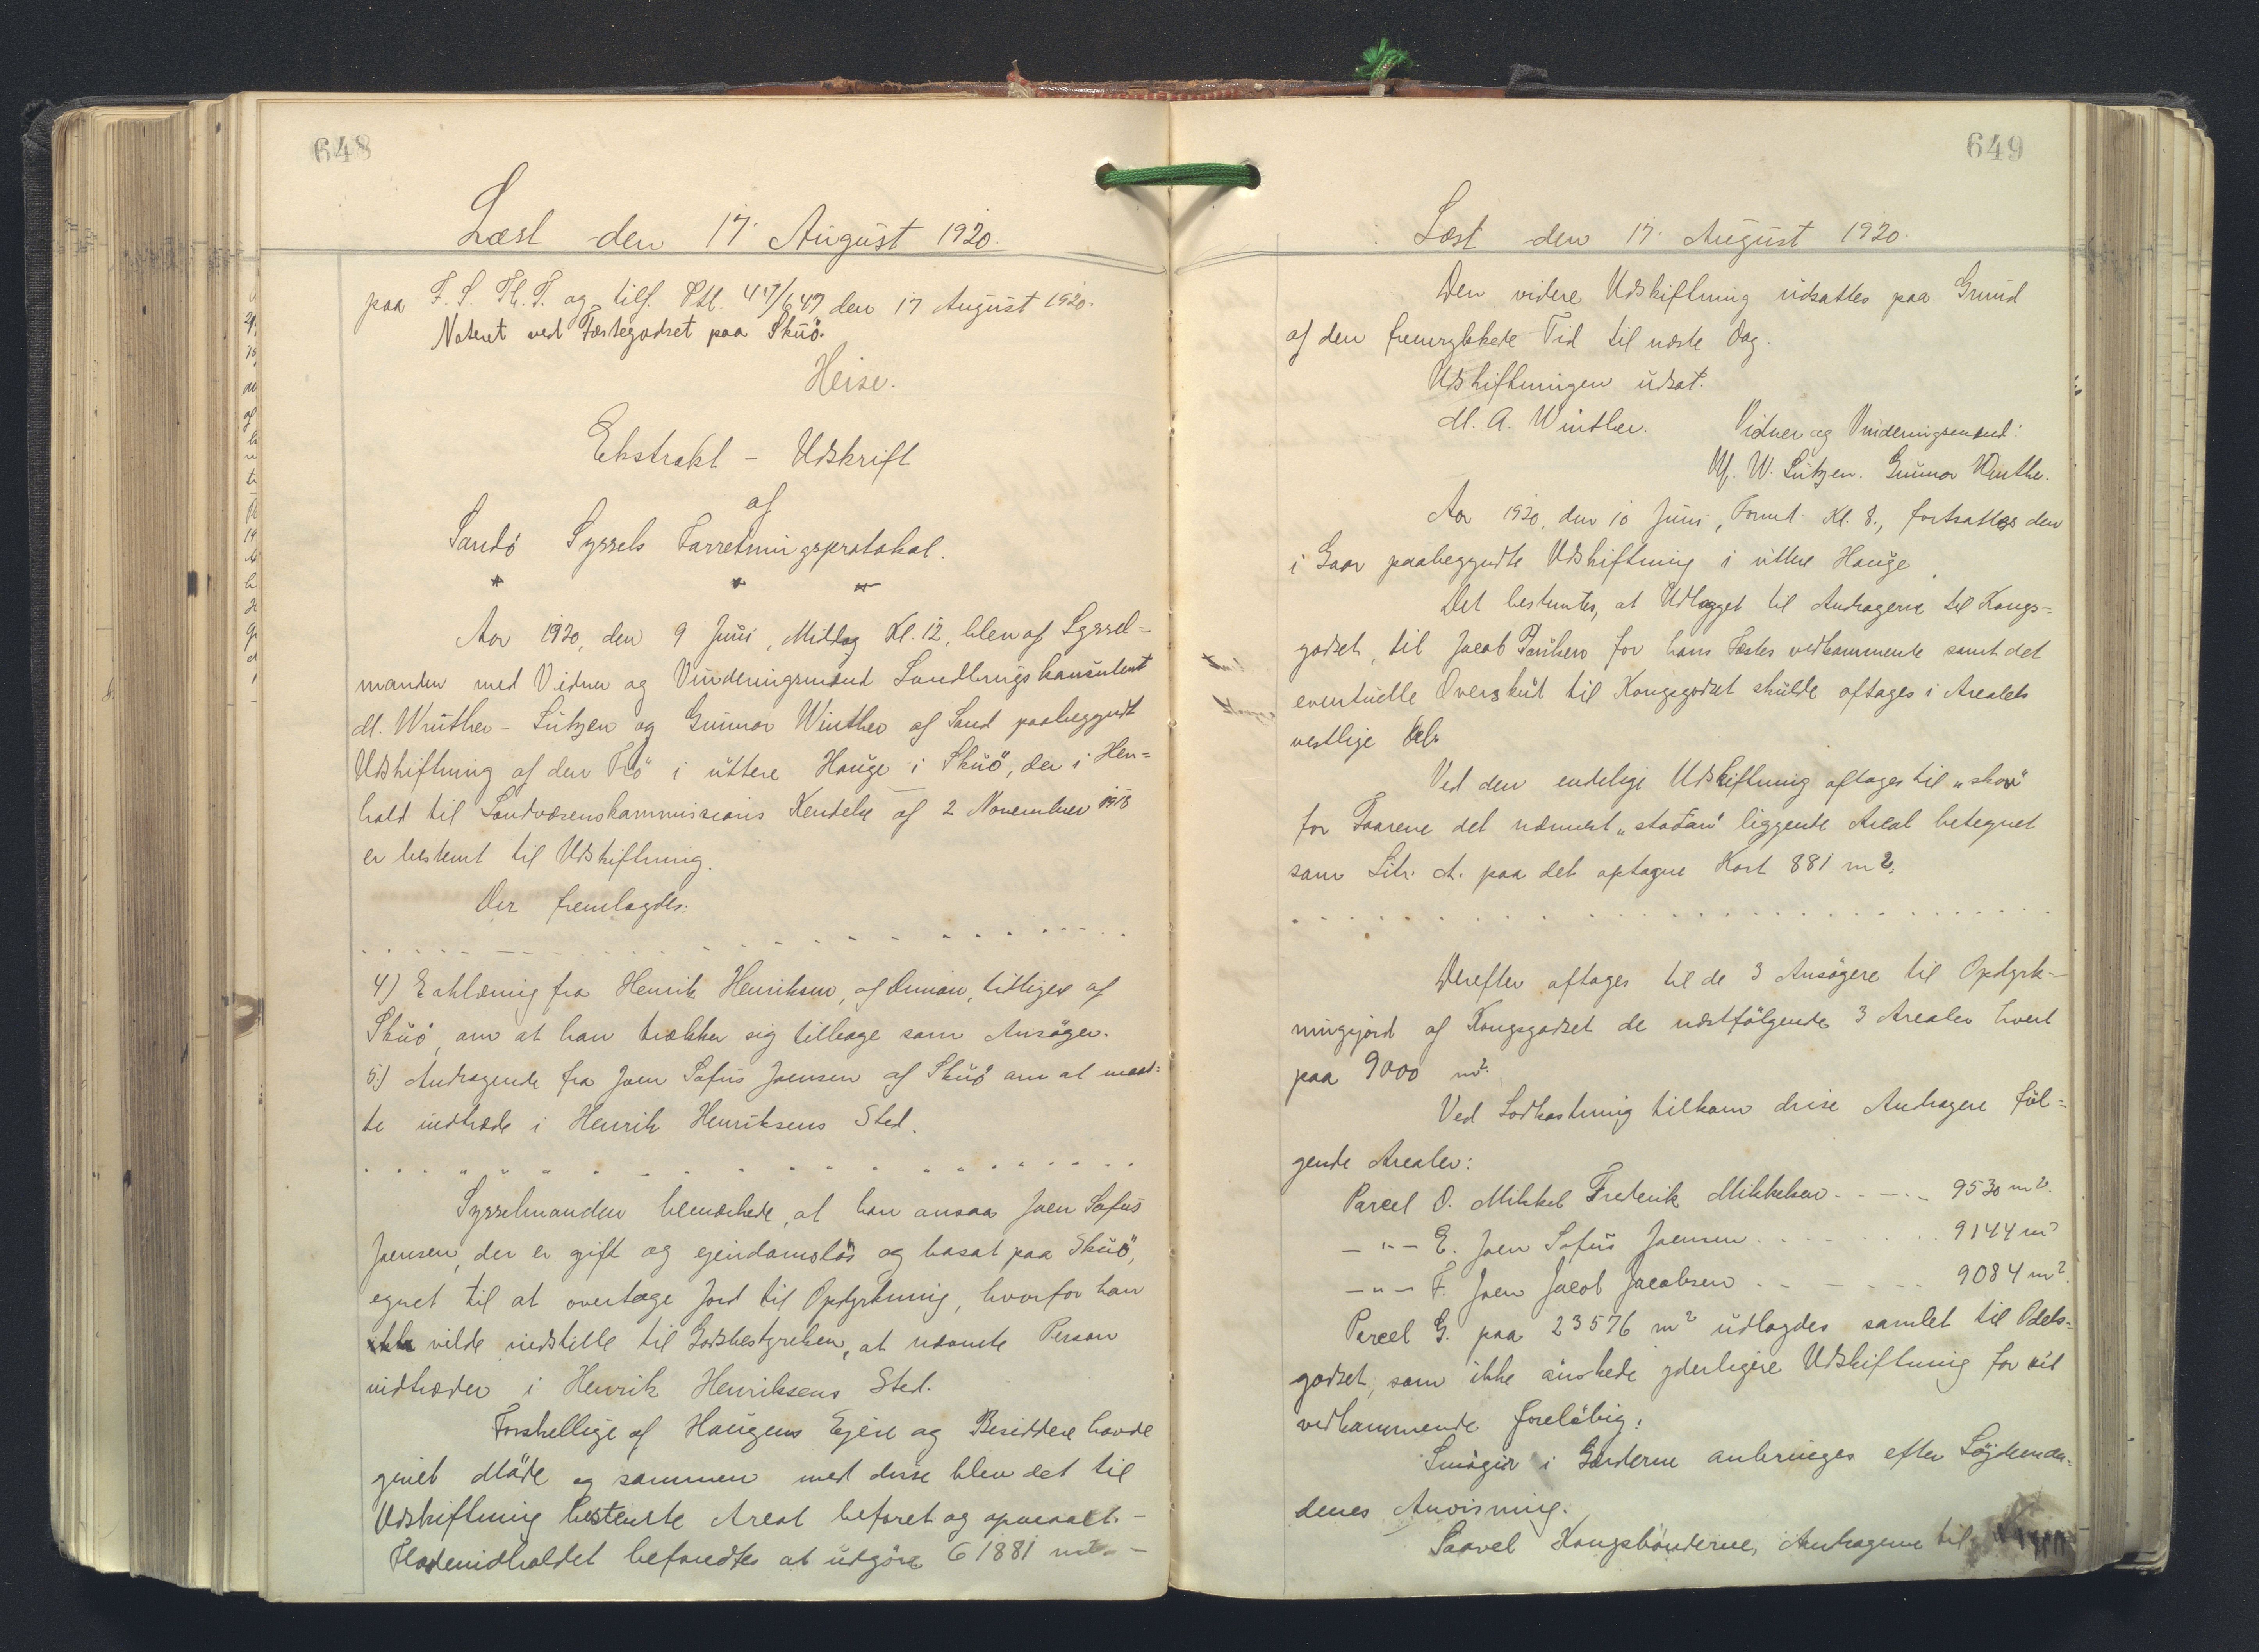 648
Læst den 17. August 1920.
paa F. S. Th. T. og tilf. Ptl. 47/647 den 17 August 1920.
Noteret ved Fæstegodset paa Skuö.
Heise.
Ekstrakt - Udskrift
af
Sandö Syssels Forretningsprotokol.
Aar 1920, den 9 Juni, Middag Kl. 12, blev af Syssel=
manden med Vidner og Vurderingsmænd Landbrugskonsulent
M. Winther-Lützen og Gunnar Winther af Sand paabegyndt
Udskiftning af den Trö i uttere Hauge i Skuö, der i Hen=
hold til Landvæsenskommissions Kendelse af 2 November 1918
er bestemt til Udskiftning.
Der fremlagdes:
4) Erklæring fra Henrik Henriksen, af Dimon, tidligere af
Skuö, om at han trækker sig tilbage som Ansöger.
5) Andragende fra Joen Sofus Joensen af Skuö om at maat=
te indtræde i Henrik Henriksens Sted.
Sysselmanden bemærkede, at han ansaa Joen Sofus
Joensen, der er gift og ejendomslös og bosat paa Skuö,
egnet til at overtage Jord til Opdyrkning, hvorfor han
vilde indstille til Godsbestyrelsen, at nævnte Person
indtræder i Henrik Henriksens Sted.
Forskellige af Haugens Ejere og Besiddere havde
givet Möde og sammen med disse blev det til
Udskiftning bestemte Areal befaret og opmaalt. -
Fladeindholdet befandtes at udgöre 61881 m2. -
649
Læst den 17. August 1920.
Den videre Udskiftning udsattes paa Grund
af den fremrykkede Tid til næste Dag.
Udskiftningen udsat.
M. A. Winther. Vidner og Vurderingsmænd:
M. W. Lützen. Gunnar Winther.
Aar 1920, den 10 Juni, Formd. Kl. 8., fortsattes den
i Gaar paabegyndte Udskiftning i uttere Hauge.
Det bestemtes, at Udlægget til Andragerne til Kongs=
godset, til Jacob for hans Fæstes vedkommende samt det
eventuelle Overskud til Kongsgodset skulde aftages i Arealets
vestlige Del.
Ved den endelige Udskiftning aftages til "
for Faarene det nærmest " liggende Areal betegnet
som Litr. A. paa det optagne Kort 881 m2.
Derefter aftages til de 3 Ansögere til Opdyrk-
ningsjord af Kongsgodset de næstfölgende 3 Arealer hvert
paa 9000 m2.
Ved Lodkastning tilkom disse Andragere föl=
gende Arealer:
Parcel D. Mikkel Frederik Mikkelsen . . . . 9530 m2.
- " - E. Joen Sofus Joensen . . . . 9144 m2
- " - F. Joen Jacob Jacobsen . . . . 9084 m2.
Parcel G. paa 23576 m2 udlagdes samlet til Odels=
godset, som ikke önskede yderligere Udskiftning for sit
vedkommende foreløbig.
i Gærderne anbringes efter
denes Anvisning.
Saavel Kongsbönderne, Andragerne til